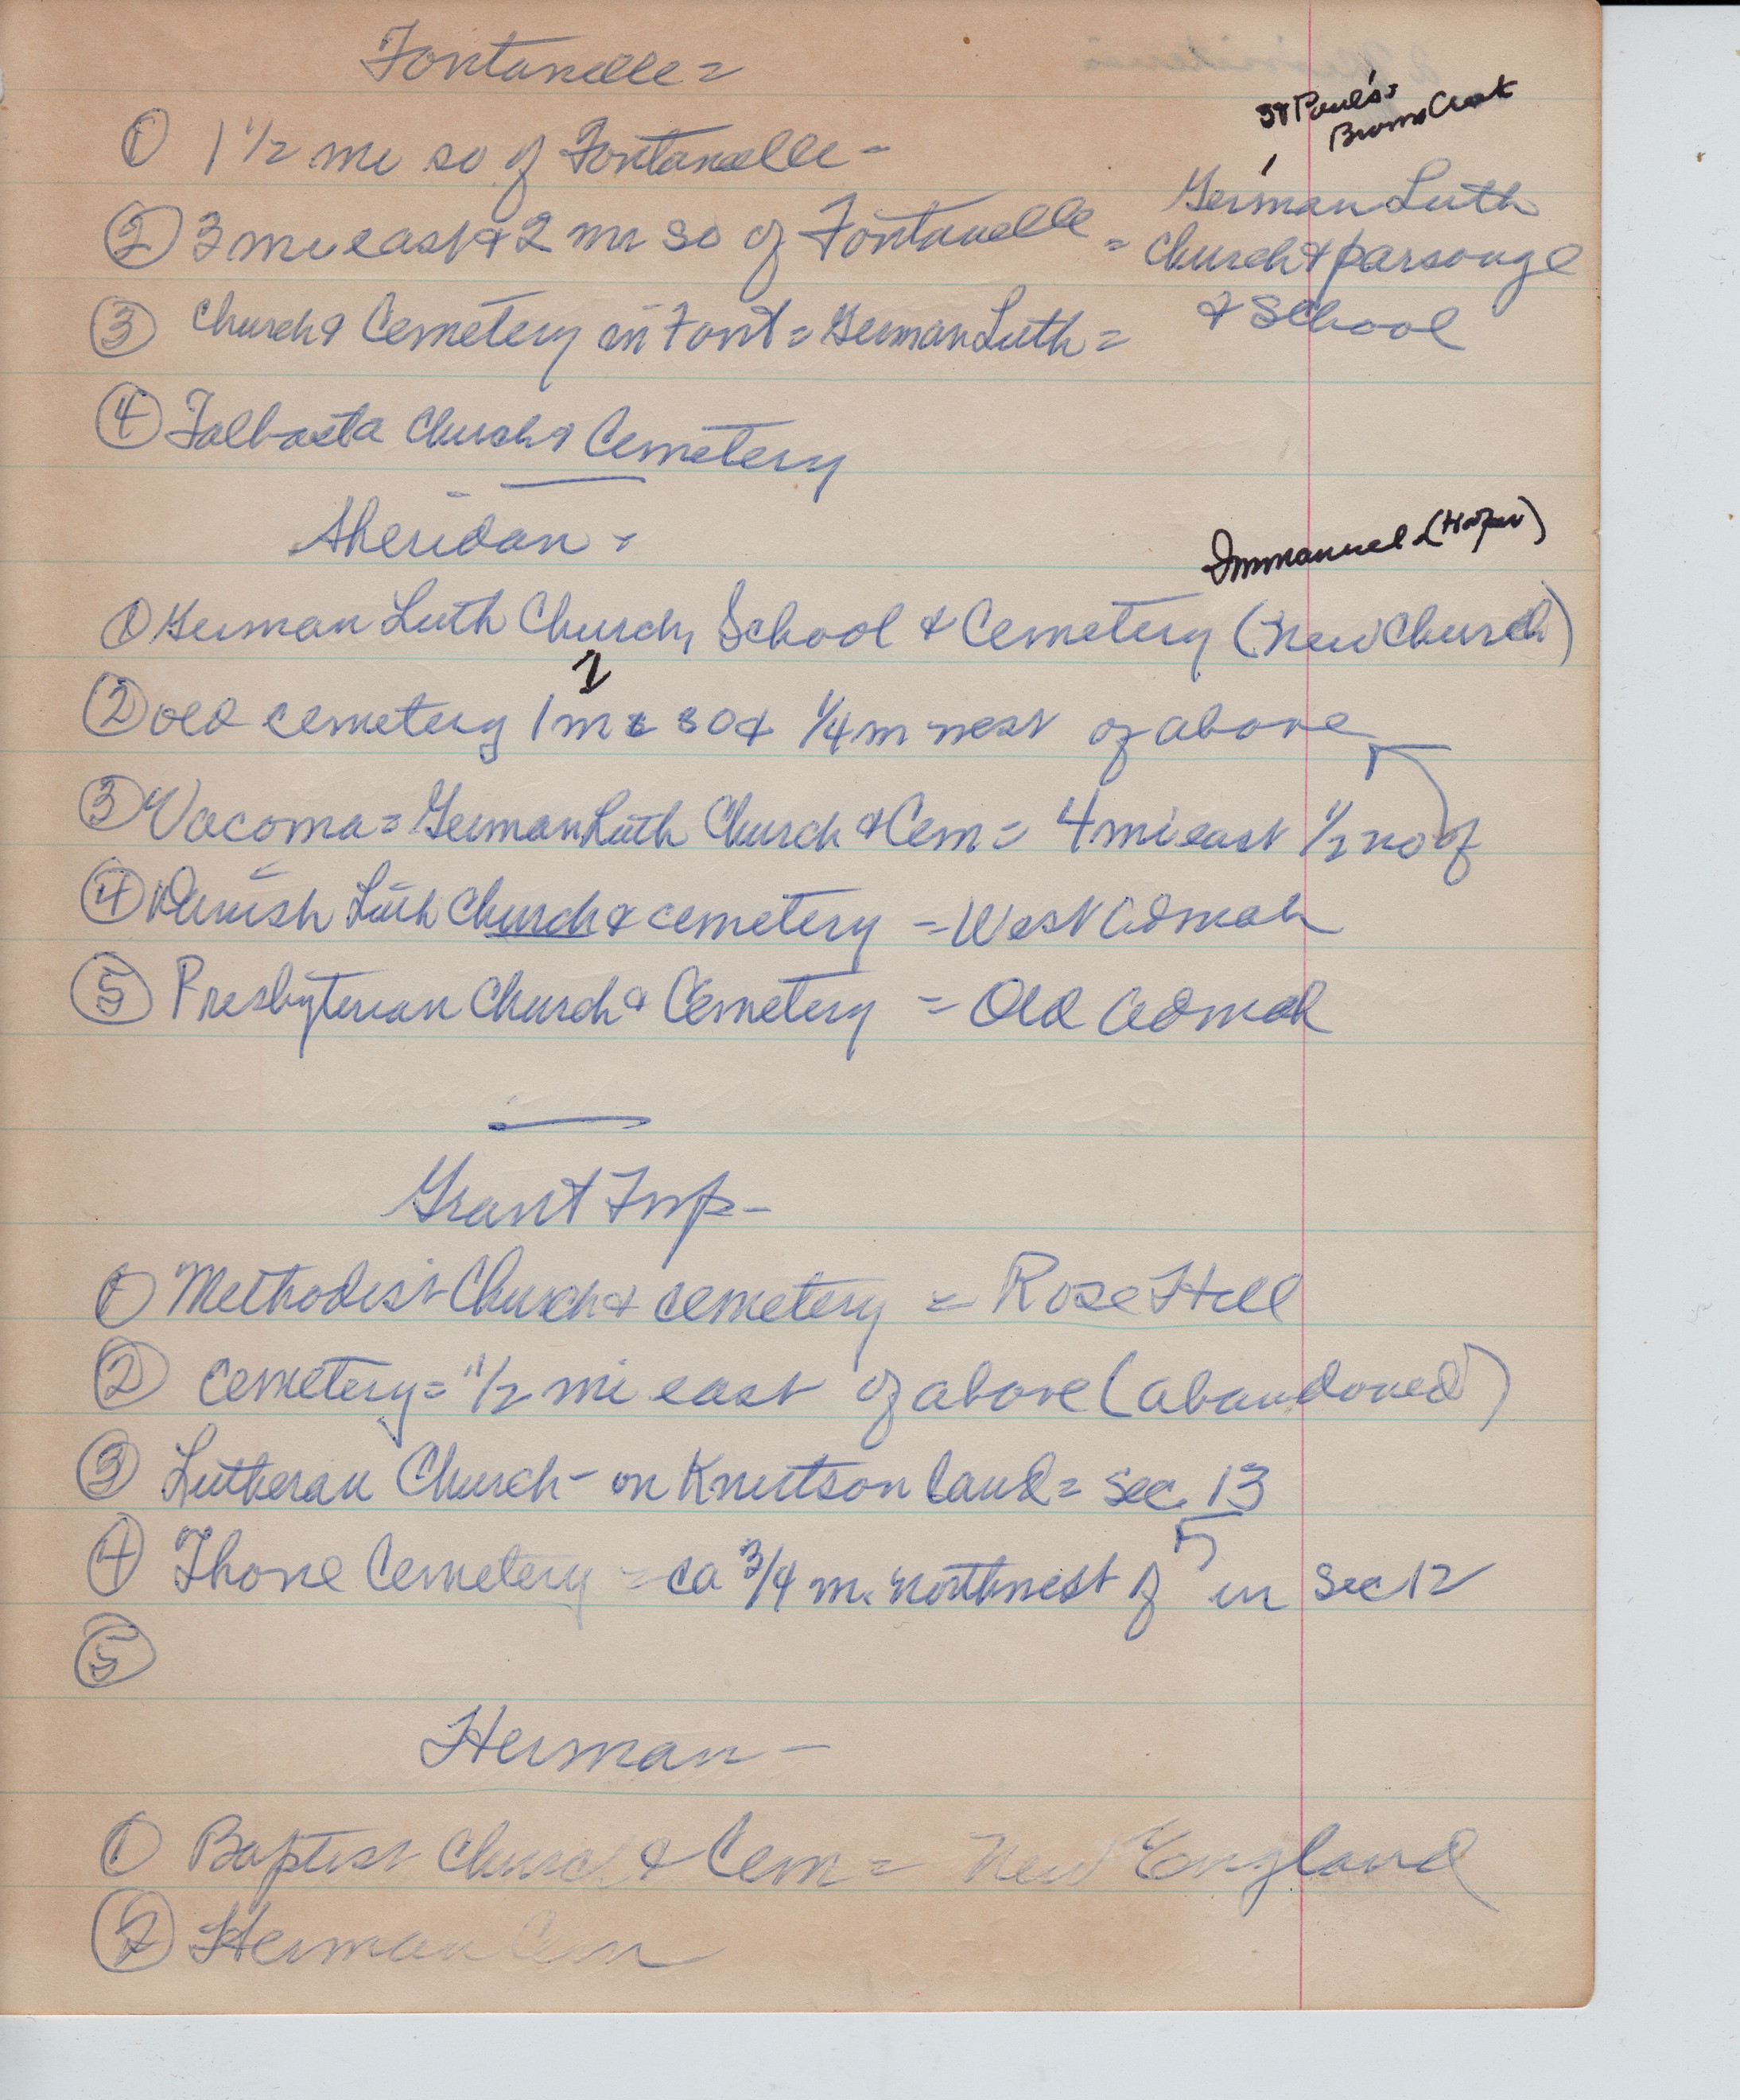 Fontanelle =
St Paul's =
① 1 1/2 mi so of Fontanelle -
② 3 mi east & 2 mi so of Fontanelle = German Luth
Church & parsonage
& School
③ Church & Cemetery in Font = German Luth =
④ Telbasta Church & Cemetery
Sheridan -
Immanuel (Hooper)
① German Luth Church, School & Cemetery (new Church)
② old cemetery 1 mi so & 1/4 m west of above
③ Vacoma = German Luth Church & Cem = 4 mi east 1/2 no of
④ Danish Luth Church & cemetery = West Admah
⑤ Presbyterian Church & Cemetery = Old Admah
Grant Twp -
① Methodist Church & cemetery = Rose Hill
② Cemetery = 1/2 mi east of above (abandoned)
③ Lutheran Church - on Knutson land = Sec. 13
④ Thone Cemetery = ca 3/4 m. northwest of in Sec 12
⑤
Herman -
① Baptist Church & Cem = New England
② Herman Cem